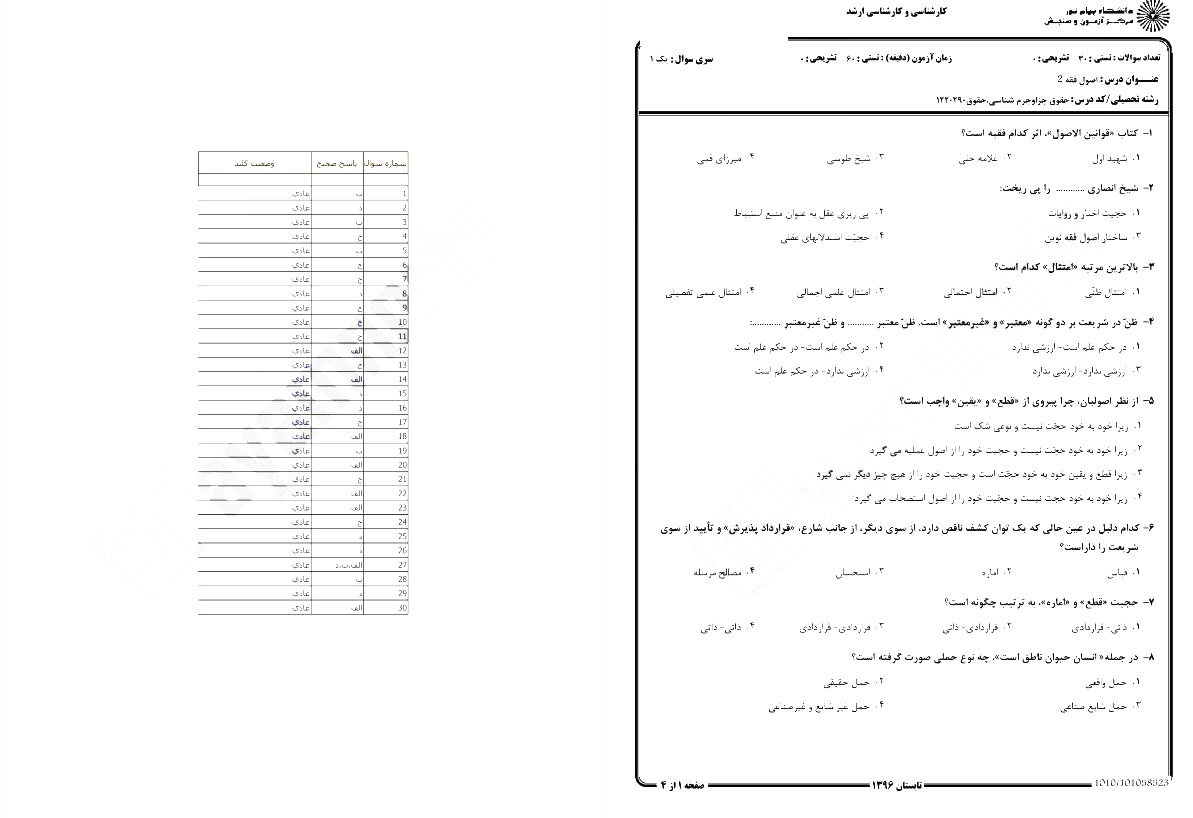 دانشگاه پیام نور
مرکز آزمون و سنجش
کارشناسی و کارشناسی ارشد
تعداد سوالات : تستی : ۳۰ تشریحی : ۰
زمان آزمون (دقیقه) : تستی : ۶۰ تشریحی : ۰
سری سوال : یک ۱
عنـــوان درس : اصول فقه 2
رشته تحصیلی/کد درس : حقوق جزاوجرم شناسی،حقوق۱۲۲۰۲۹۰
۱- کتاب «قوانین الاصول»، اثر کدام فقیه است؟
۱. شهید اول ۲. علامه حلی ۳. شیخ طوسی ۴. میرزای قمی
۲- شیخ انصاری ............ را پی ریخت:
۱. حجیت اخبار و روایات ۲. پی ریزی عقل به عنوان منبع استنباط
۳. ساختار اصول فقه نوین ۴. حجیّت استدلالهای عقلی
۳- بالاترین مرتبه «امتثال» کدام است؟
۱. امتثال ظنّی ۲. امتثال احتمالی ۳. امتثال علمی اجمالی ۴. امتثال علمی تفصیلی
۴- ظنّ در شریعت بر دو گونه «معتبر» و «غیرمعتبر» است. ظنّ معتبر .......... و ظنّ غیرمعتبر ...........:
۱. در حکم علم است- ارزشی ندارد ۲. در حکم علم است- در حکم علم است
۳. ارزشی ندارد- ارزشی ندارد ۴. ارزشی ندارد- در حکم علم است
۵- از نظر اصولیان، چرا پیروی از «قطع» و «یقین» واجب است؟
۱. زیرا خود به خود حجّت نیست و نوعی شک است
۲. زیرا خود به خود حجّت نیست و حجیت خود را از اصول عملیه می گیرد
۳. زیرا قطع و یقین خود به خود حجّت است و حجیت خود را از هیچ چیز دیگر نمی گیرد
۴. زیرا خود به خود حجت نیست و حجّیت خود را از اصول استصحاب می گیرد
۶- کدام دلیل در عین حالی که یک توان کشف ناقص دارد، از سوی دیگر، از جانب شارع، «قرارداد پذیرش» و تأیید از سوی
شریعت را داراست؟
۱. قیاس ۲. اماره ۳. استحسان ۴. مصالح مرسله
۷- حجیت «قطع» و «اماره»، به ترتیب چگونه است؟
۱. ذاتی- قراردادی ۲. قراردادی- ذاتی ۳. قراردادی- قراردادی ۴. ذاتی- ذاتی
۸- در جمله« انسان حیوان ناطق است»، چه نوع حملی صورت گرفته است؟
۱. حمل واقعی ۲. حمل حقیقی
۳. حمل شایع صناعی ۴. حمل غیر شایع و غیرصناعی
صفحه ۱ از ۴
تابستان ۱۳۹۶
1010/101058523
شماره سوال پاسخ صحیح وضعیت کلید
1 ب عادي
2 د عادي
3 ب عادي
4 ج عادي
5 ب عادي
6 ج عادي
7 ج عادي
8 د عادي
9 ج عادي
10 ج عادي
11 ج عادي
12 الف عادي
13 ج عادي
14 الف عادي
15 د عادي
16 د عادي
17 ج عادي
18 الف عادي
19 ب عادي
20 الف عادي
21 ج عادي
22 الف عادي
23 الف عادي
24 ج عادي
25 د عادي
26 د عادي
27 الف،ب،د عادي
28 ب عادي
29 د عادي
30 الف عادي